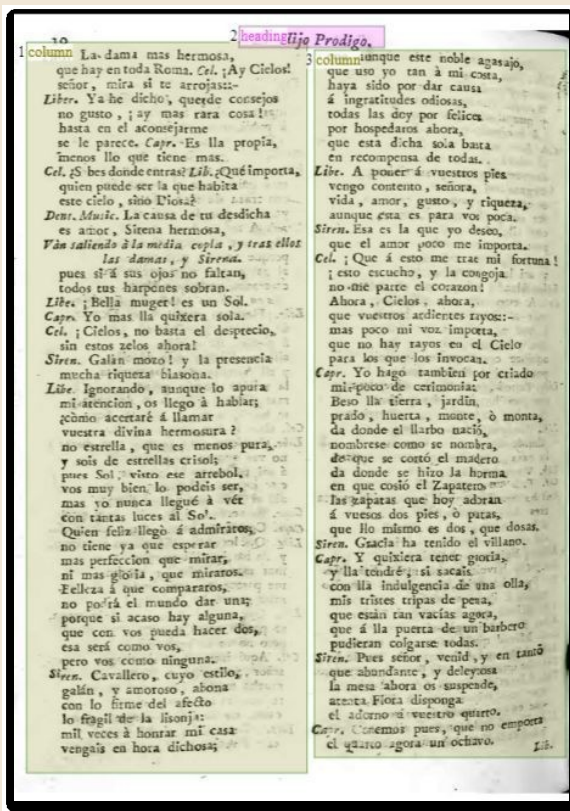 10
Hijo Prodigo.
La dama mas hermosa,
que hay en toda Roma. Cel. ¡Ay Cielos!
señor, mira si te arrojas::-
Liber. Ya he dicho, querde consejos
no gusto, ¡ay mas rara cosa!
hasta en el aconsejarme
se le parece. Capr. Es lla propia,
menos llo que tiene mas.
Cel. ¿S bes donde entras? Lib. ¿Qué importa,
quien puede ser la que habita
este cielo, sino Diosa?
Dent. Music. La causa de tu desdicha
es amor, Sirena hermosa,
Vàn saliendo à la media copla, y tras ellos
las damas, y Sirena.
pues si á sus ojos no faltan,
todos tus harpones sobran.
Libe. ¡Bella muger! es un Sol.
Capr. Yo mas lla quixera sola.
Cel. ¡Cielos, no basta el desprecio,
sin estos zelos ahora!
Siren. Galán mozo! y la presencia
mucha riqueza blasona.
Libe. Ignorando, aunque lo apura
mi atencion, os llego à hablar;
¿cómo acertaré á llamar
vuestra divina hermosura?
no estrella, que es menos pura,
y sois de estrellas crisol;
pues Sol, visto ese arrebol,
vos muy bien lo podeis ser,
mas yo nunca llegué à vér
con tantas luces al Sol.
Quien feliz llegò á admiraros,
no tiene ya que esperar
mas perfeccion que mirar,
ni mas gloria, que miraros.
Belleza á que compararos,
no podrá el mundo dar una;
porque si acaso hay alguna,
que con vos pueda hacer dos,
esa será como vos,
pero vos como ninguna.
Siren. Cavallero, cuyo estilo,
galán, y amoroso, abona
con lo firme del afecto
lo fragil de la lisonja:
mil veces à honrar mi casa
vengais en hora dichosa;
aunque este noble agasajo,
que uso yo tan à mi costa,
haya sido por dar causa
á ingratitudes odiosas,
todas las doy por felices
por hospedaros ahora,
que esta dicha sola basta
en recompensa de todas.
Libe. A poner á vuestros pies
vengo contento, señora,
vida, amor, gusto, y riqueza,
aunque esta es para vos poca.
Siren. Esa es la que yo deseo,
que el amor poco me importa.
Cel. ¡Que á esto me trae mi fortuna!
¡esto escucho, y la congoja
no me parte el corazon!
Ahora, Cielos, ahora,
que vuestros ardientes rayos::-
mas poco mi voz importa,
que no hay rayos en el Cielo
para los que los invocan.
Capr. Yo hago tambien por criado
mi poco de cerimonia:
Beso lla tierra, jardin,
prado, huerta, monte, ò monta,
da donde el llarbo nació,
nombrese como se nombra,
de que se cortó el madero
da donde se hizo la horma
en que cosió el Zapatero
las zapatas que hoy adoran
á vuesos dos pies, ò patas,
que llo mismo es dos, que dosas.
Siren. Gracia ha tenido el villano.
Capr. Y quixiera tener gloria,
y lla tendré, si sacais
con lla indulgencia de una olla,
mis tristes tripas de pena,
que están tan vacías agora,
que á lla puerta de un barbero
pudieran colgarse todas.
Siren. Pues señor, venid, y en tanto
que abundante, y deleytosa
la mesa ahora os suspende,
atenta Flora disponga
el adorno á vuestro quarto.
Capr. Cenemos pues, que no emporta
el quarto agora un ochavo.
Lib.
1 column
2 heading
3 column